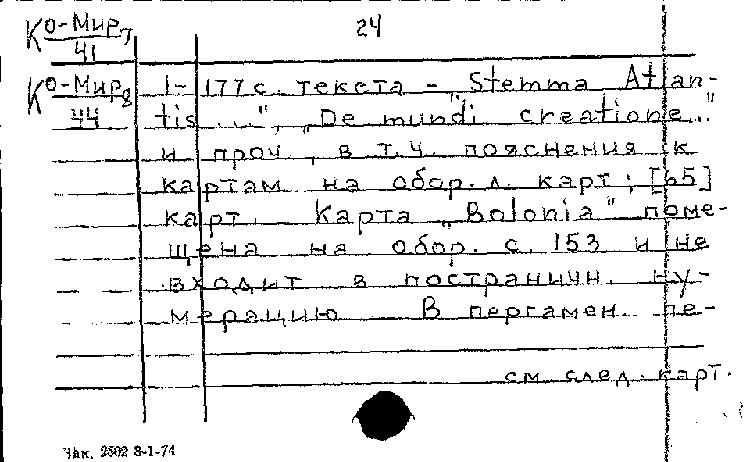 Ко-Мир7 24
41
Ко-Мир8 1-177 с. текста - „Stemma Atlan-
44 tis ...", „De mundi creatione..."
и проч., в т.ч. пояснения к
картам на обор. л. карт; [65]
карт. Карта „Bolonia" поме-
щена на обор. с. 153 и не
входит в постраничн. ну-
мерацию. В пергамен. пе-
см. след. карт.
Зак. 2502 8-1-74